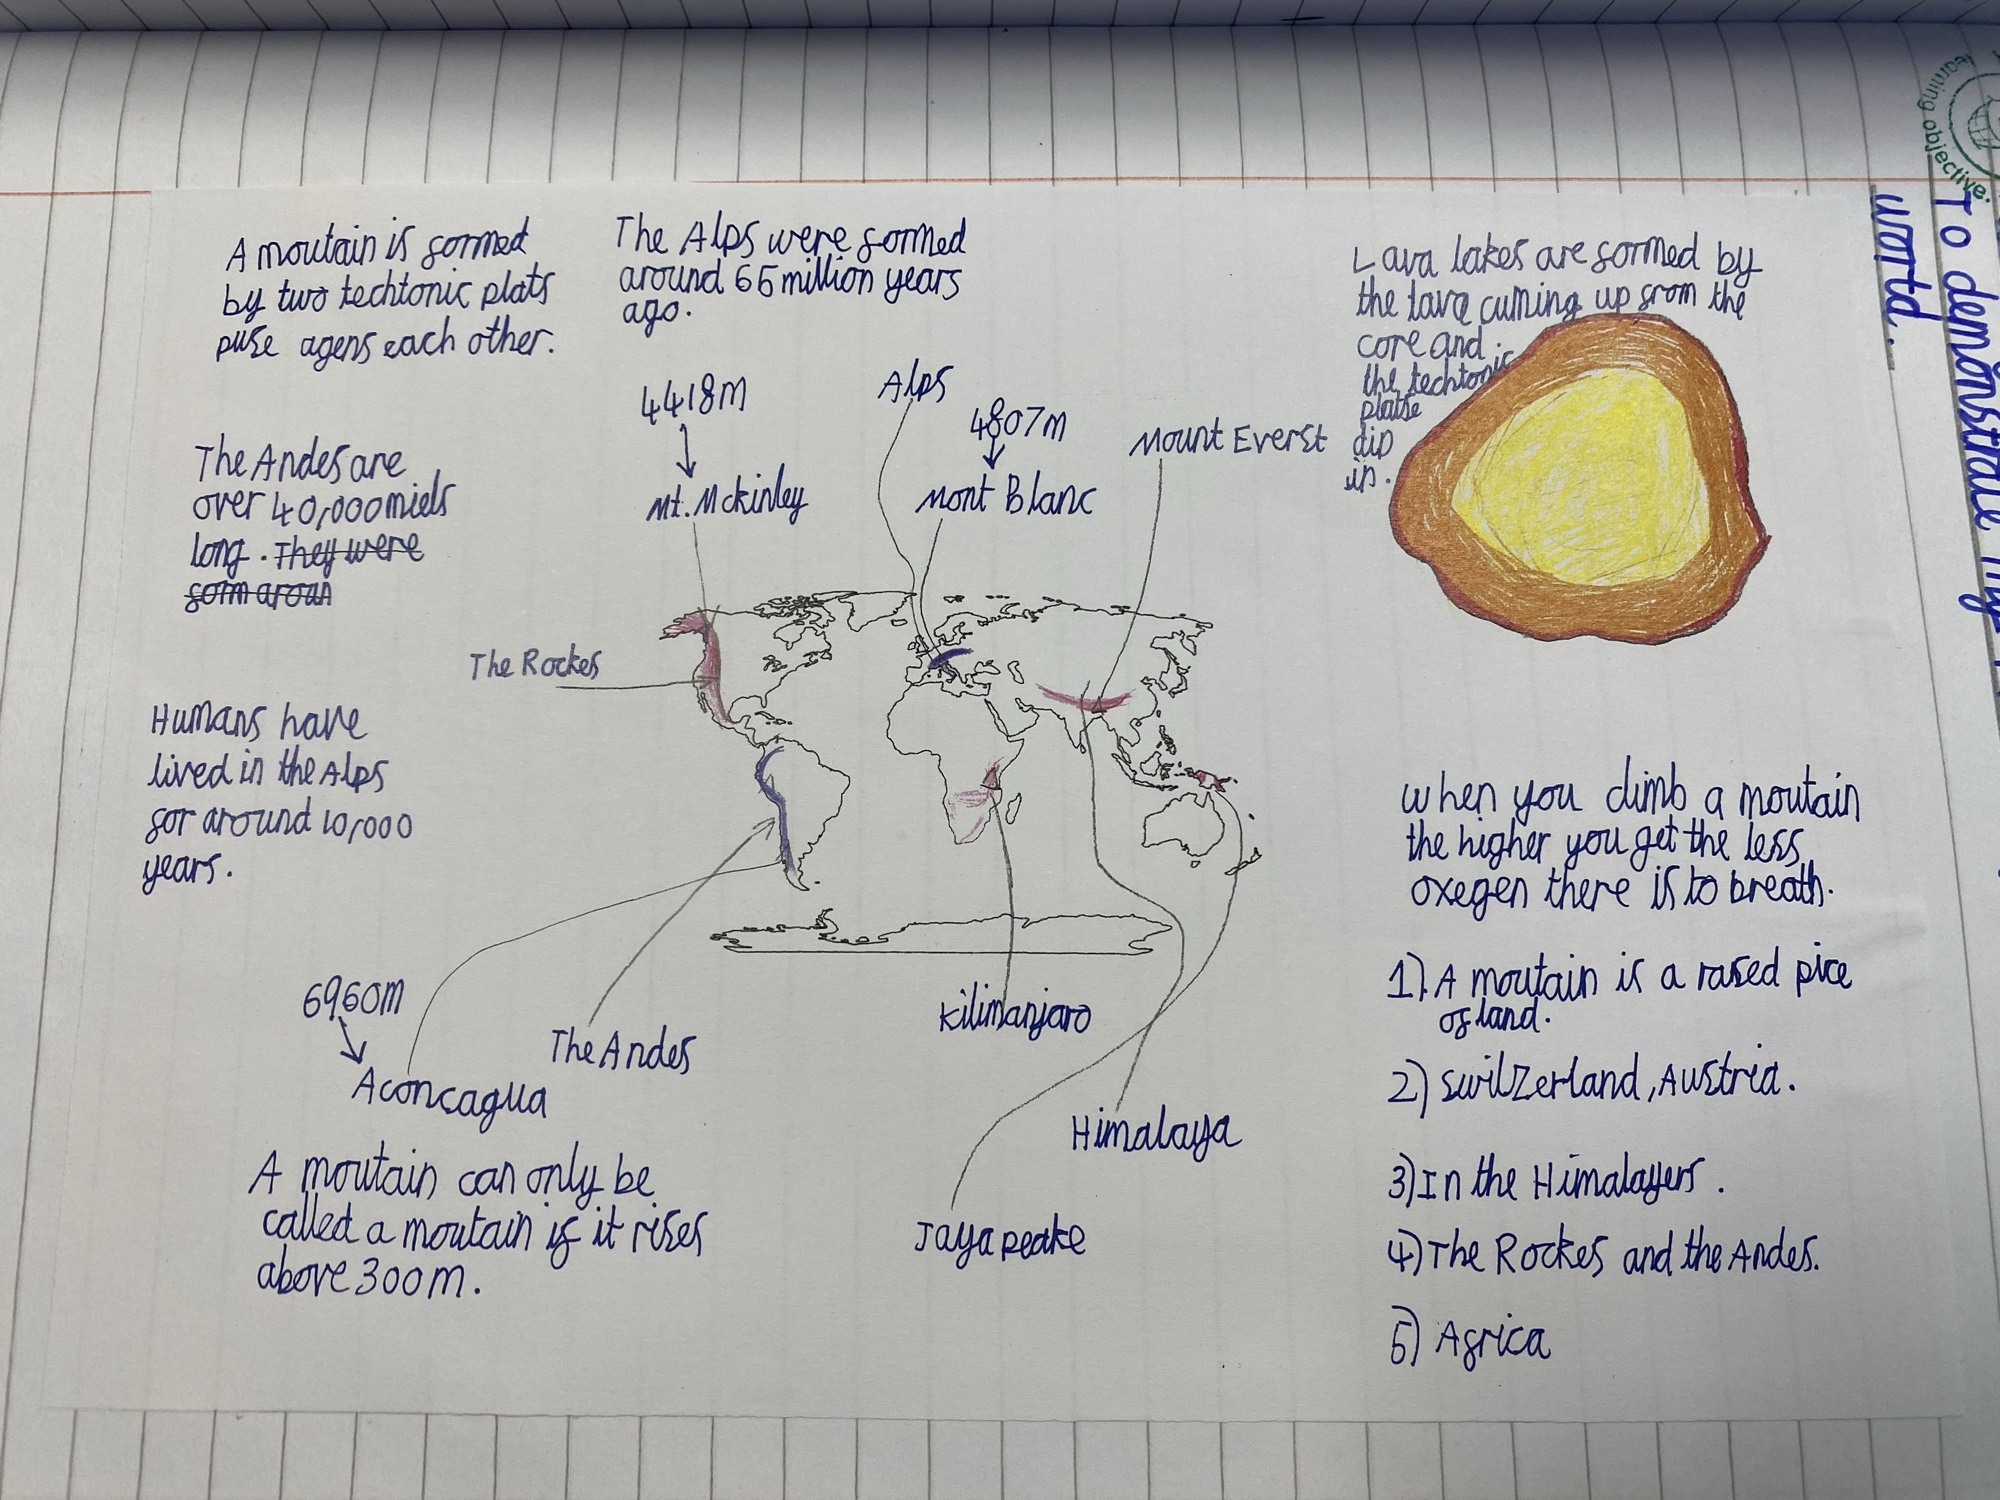 A moutain is formed
by two techtonic plats
puse agens each other.
The Alps were formed
around 65 million years
ago.
Lava lakes are formed by
the lava cuming up from the
core and
the techtonic
platse
dip
in.
4418m
Alps
4807m
Mount Everst
Mt. Mckinley
Mont Blanc
The Andes are
over 40,000 miels
long. They were
form aroun
The Rockes
Humans have
lived in the Alps
for around 10,000
years.
6960m
Aconcagua
The Andes
Kilimanjaro
Himalaya
Jaya peake
A moutain can only be
called a moutain if it rises
above 300m.
when you climb a moutain
the higher you get the less
oxegen there is to breath.
1). A moutain is a rased pice
of land.
2) Swilzerland, Austria.
3) In the Himalayers.
4) The Rockes and the Andes.
5) Africa
learning objective:
To demonstrate my
world.